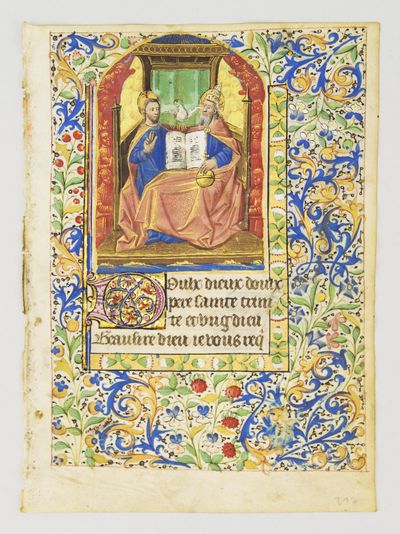 Doulx dieux doulx
pere sainte trini
te et ung dieu
Beau sire dieu ie vous req
217